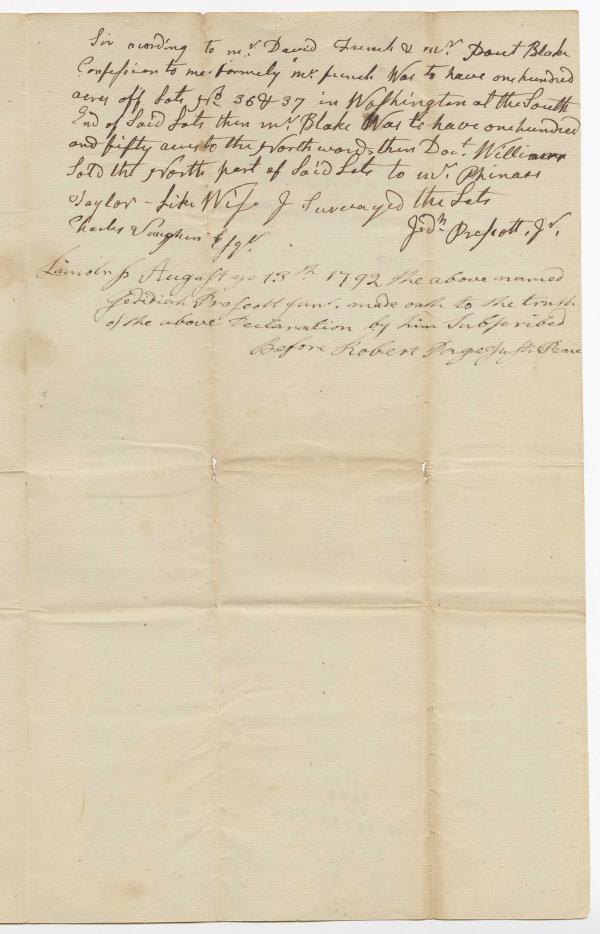 Sir acording to mr. David French & mr. Dant Blake
Confession to me formely mr french Was to have one hundred
acres off Lots No. 36 & 37 in Washington at the South
End of Said Lots then mr. Blake Was to have one hundred
and fifty acres to the Northword, then Doct. Williams
Sold the North part of Said Lots to mr. Phinass
Taylor - Like Wise I Survayed the Lots
Jedh. Prescott, Jr.
Charles Vaughan Esqr.
Lincoln ss August ye 13th 1792 the above named
Jedidiah Prescott junr. made oath to the truth
of the above Declaration by him Subscribed
Before Robert Page Just. Peace